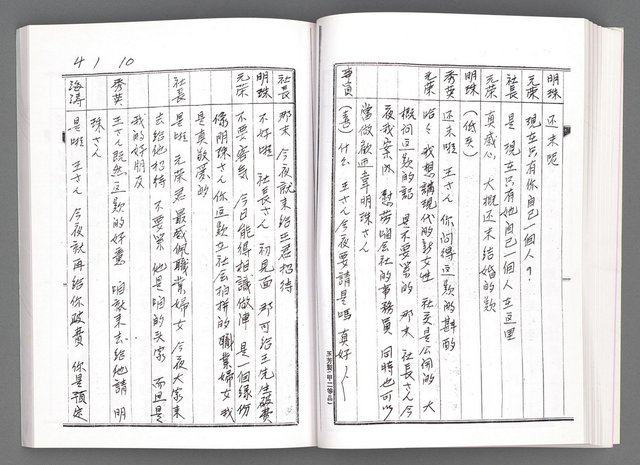 明珠　还未呢
元荣　现在只有你自己一個人？
社長　是 現在只有她自己一個人在这里
元荣　真感心 大概还未结婚的欵
明珠　（低头）
秀英　还未啦 王さん 你问得这欵的斟酌
元荣　哈々 我想講現代的新女性 社交是公闹的 大
概问这欵的話 是不要緊的 那末 社長さん今
夜我案内 慰劳咱会社的事務員 同時也可以
當做歡迎韋明珠さん
事員　（喜）什么 王さん今夜要請是嗎 真好
社長　那末 今夜就来给王君招待
明珠　不好啦 社長さん 初見面 那可给王先生破費
元荣　不要客氣 今日能得相識做陣 是一個缘份
像明珠さん你这欵立社会拍拼的職業婦女 我
是真敬爱的
社長　是啦 元荣君最感佩職業婦女 今夜大家来
去给他招待 不要緊 他是咱的头家 而且是
我的好朋友
秀英　王さん既然这欵的好意 咱就来去给他請 明
珠さん
海涛　是啦 王さん 今夜就再给你破費 你是預定
4 1 10